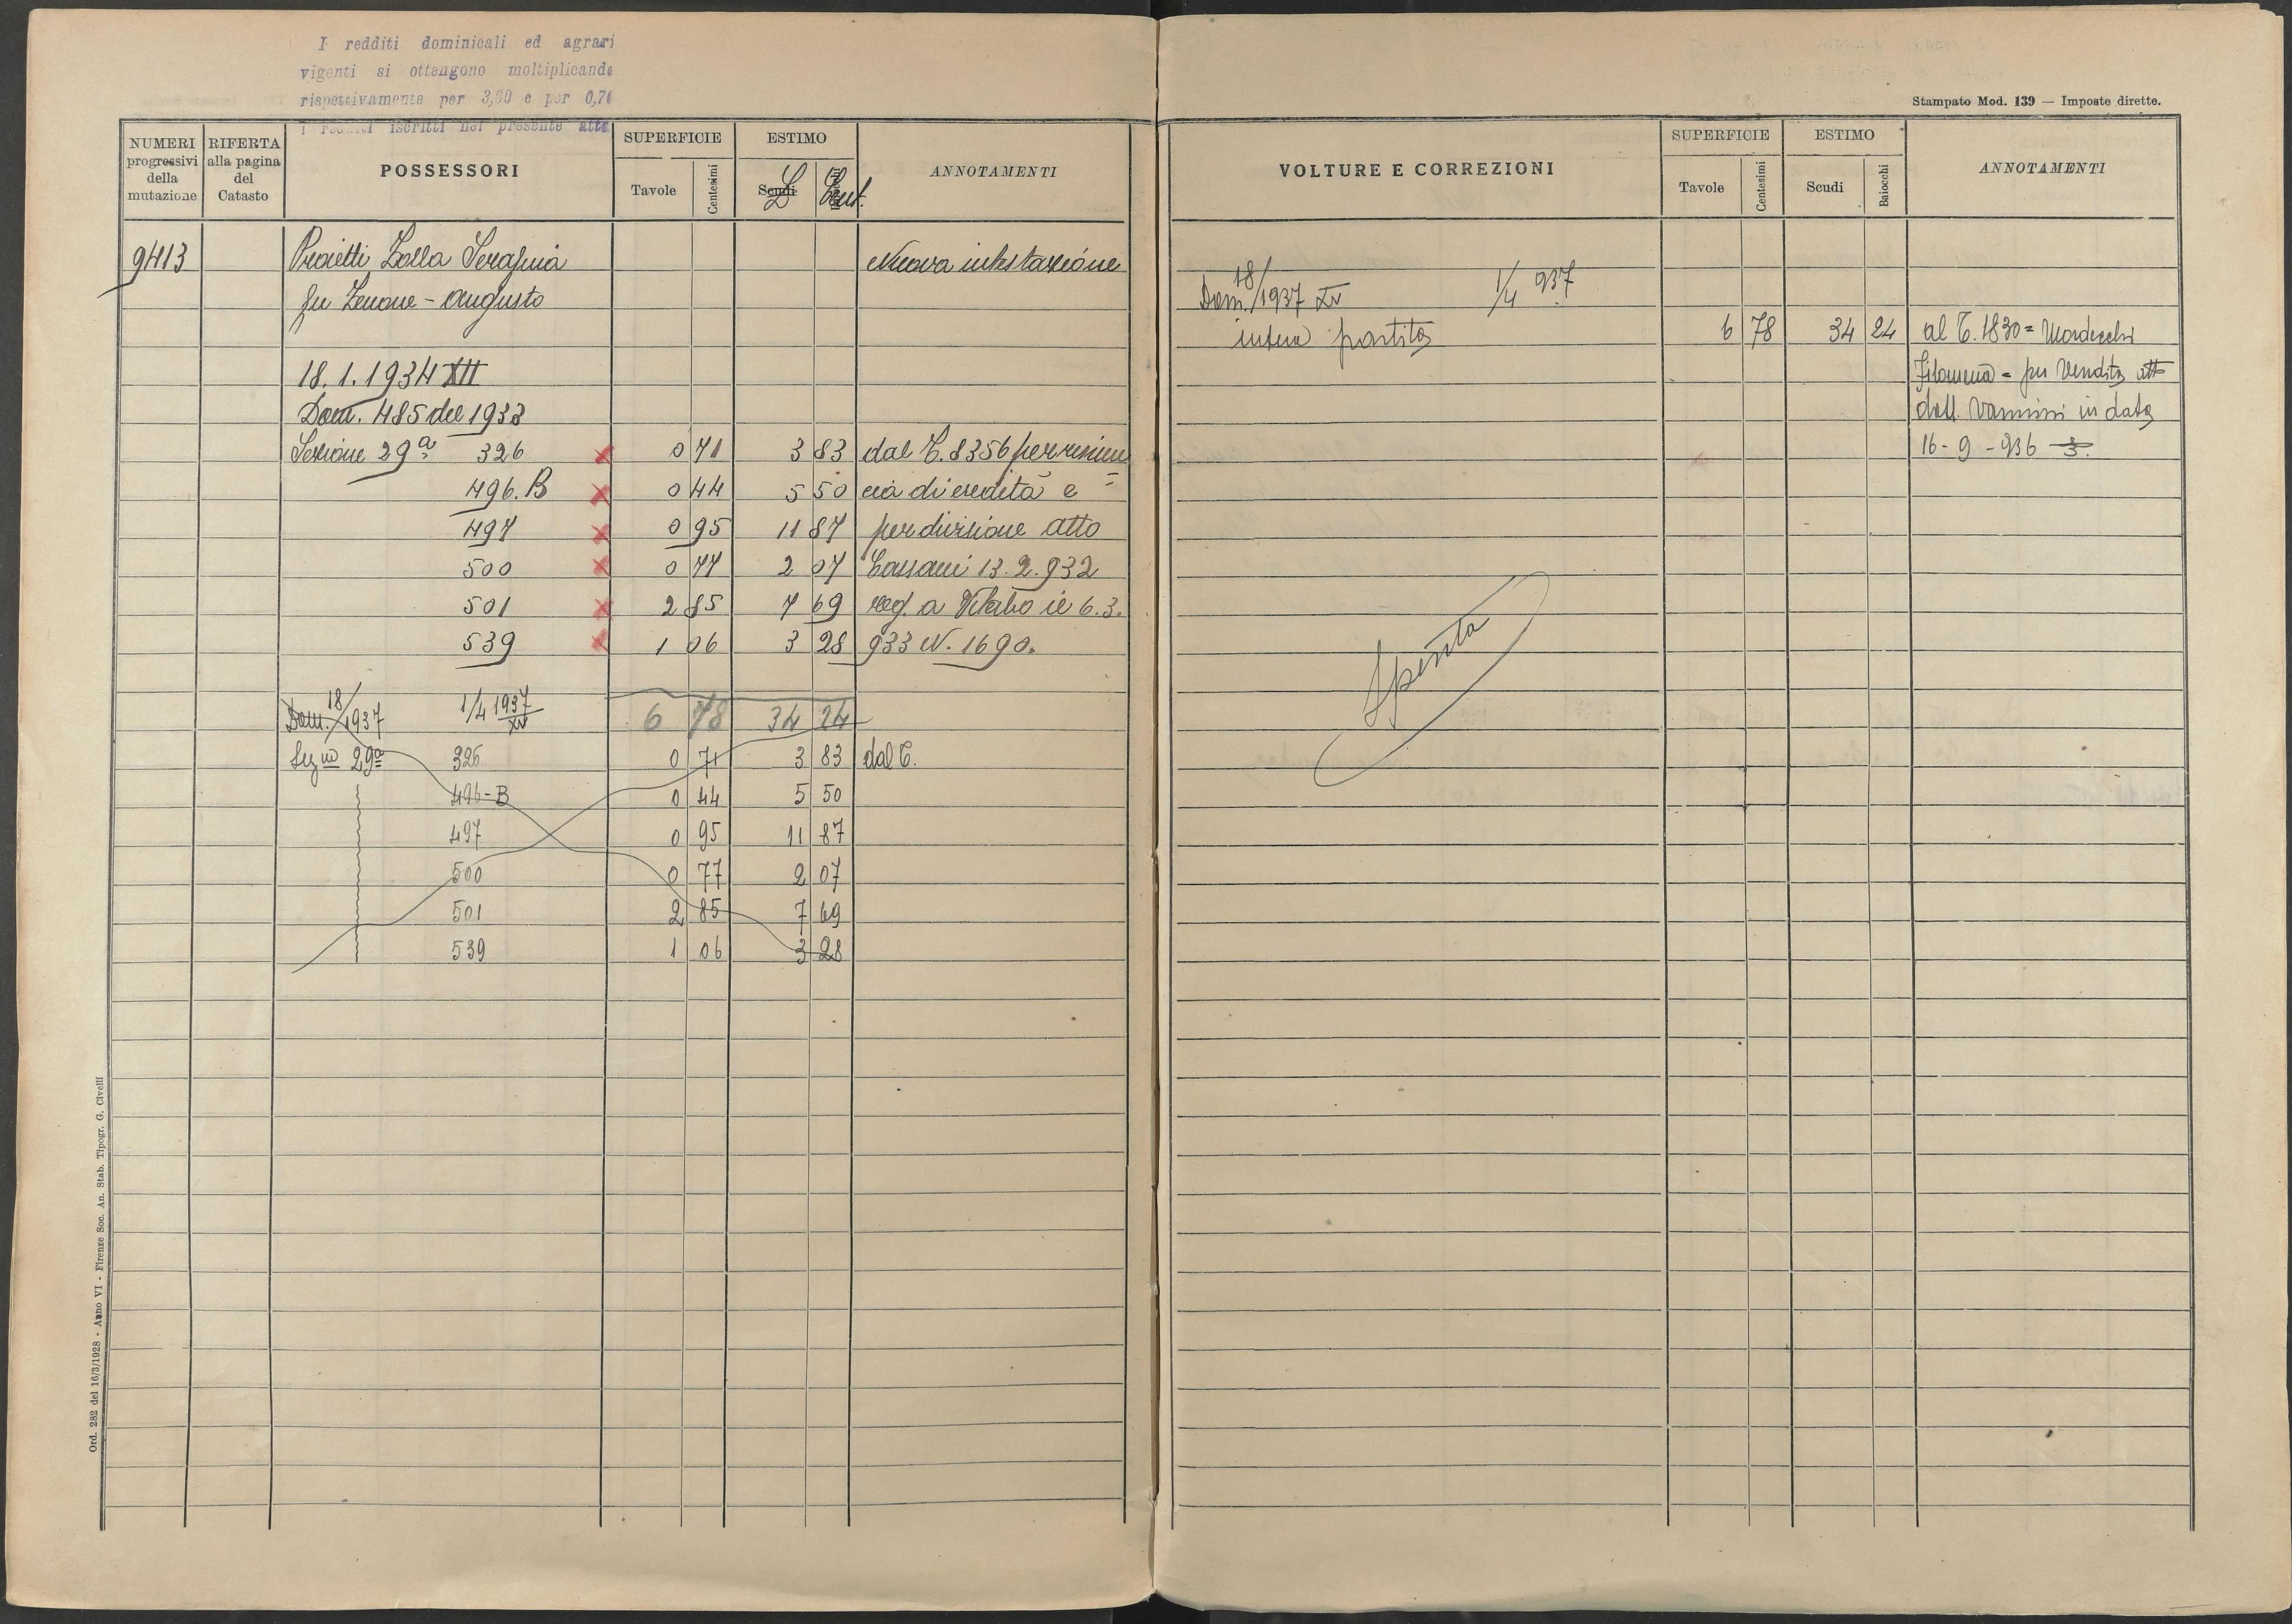 I redditi dominicali ed agrari
vigenti si ottengono moltiplicando
rispettivamente per 3,60 e per 0,70
i redditi iscritti nel presente atto
NUMERI progressivi della mutazione
RIFERTA alla pagina del Catasto
POSSESSORI
SUPERFICIE
Tavole Centesimi
ESTIMO
Scudi L Cent.
ANNOTAMENTI
9413 Proietti Zolla Serafina Nuova intestazione
fu Zenone - Augusto
18.1.1934 XII
Dom. 485 del 1933
Sezione 29ª 326 x 0 71 3 83 dal C. 8356 per rinun
496.B x 0 44 5 50 cia di eredità e
497 x 0 95 11 87 per divisione atto
500 x 0 77 2 07 Cassani 13.2.932
501 x 2 85 7 69 reg. a Viterbo il 6.3.
539 x 1 06 3 28 933 N. 1690.
Dom. 18/1937 1/4 1937 XV 6 78 34 24
Sezne 29ª 326 0 71 3 83 dal C.
496-B 0 44 5 50
497 0 95 11 87
500 0 77 2 07
501 2 85 7 69
539 1 06 3 28
Ord. 282 del 16/3/1928 - Anno VI - Firenze Soc. An. Stab. Tipogr. G. Civelli
Stampato Mod. 139 — Imposte dirette.
VOLTURE E CORREZIONI
SUPERFICIE
Tavole Centesimi
ESTIMO
Scudi Baiocchi
ANNOTAMENTI
Dom. 18/1937 XV 1/4 937
intera partita 6 78 34 24 al C. 1830 =
Filomena = per Vendita att
dott. Vannini in data
16-9-936
Spenta